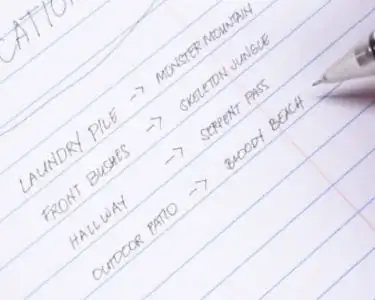 CATION
LAUNDRY PILE -> MONSTER MOUNTAIN
FRONT BUSHES -> SKELETON JUNGLE
HALLWAY -> SERPENT PASS
OUTDOOR PATIO -> BLOODY BEACH